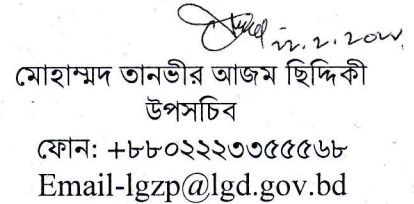 মোহাম্মদ তানভীর আজম ছিদ্দিকী
উপসচিব
ফোন: +৮৮০২২২৩৩৫৫৫৬৮
Email-lgzp@lgd.gov.bd